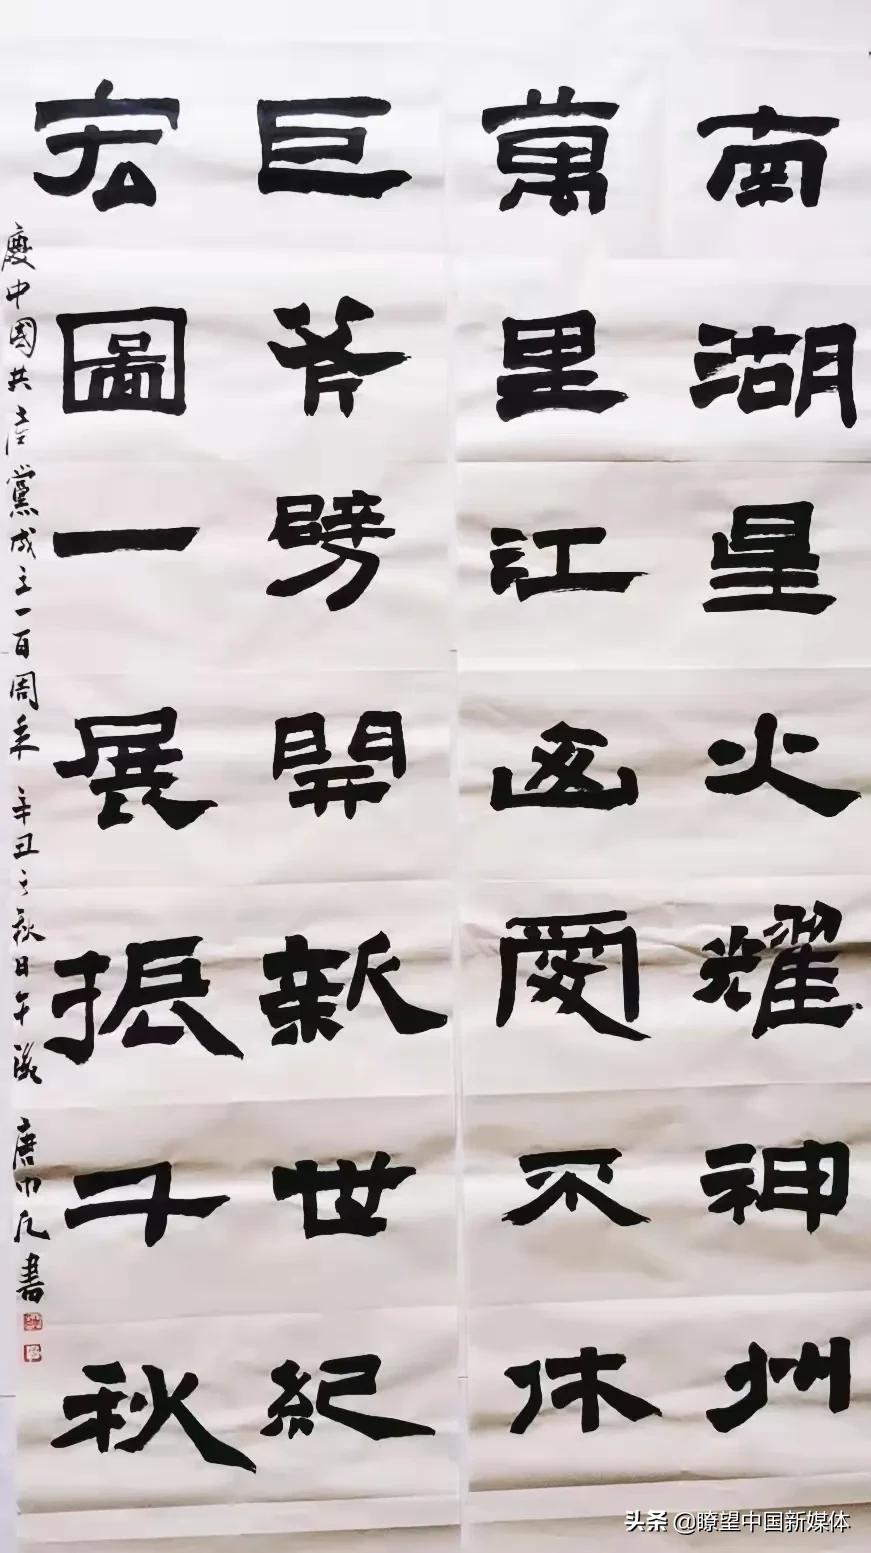 南湖星火耀神州
萬里江愛不休
巨斧劈開新世紀
宏圖一展振千秋
慶中國共產黨成立一百周年 辛丑之秋日午後 唐凡書
头条 @瞭望中国新媒体